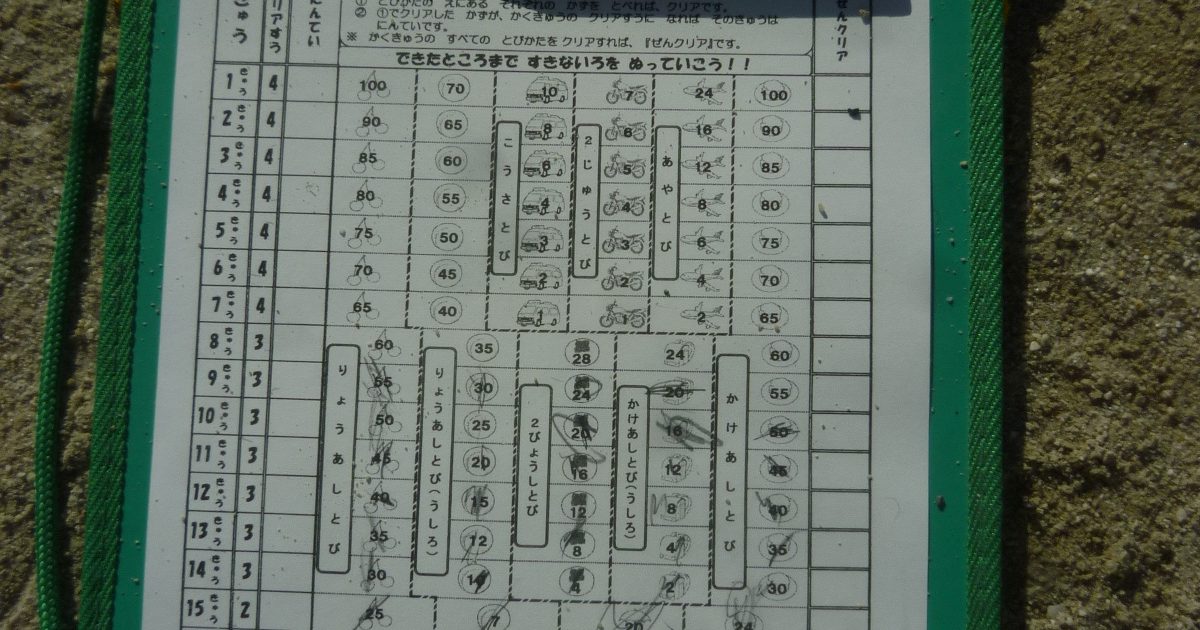 ① とびかたの えにある それぞれの かずを とべれば、クリアです。
② ①でクリアした かずが、かくきゅうの クリアすうに なれば そのきゅうは
にんていです。
※ かくきゅうの すべての とびかたを クリアすれば、『ぜんクリア』です。
できたところまで すきないろを ぬっていこう！！
きゅう
クリアすう
にんてい
ぜんクリア
1きゅう 4 100 70 10 7 24 100
2きゅう 4 90 65 8 6 16 90
3きゅう 4 85 60 6 5 12 85
4きゅう 4 80 55 4 4 8 80
5きゅう 4 75 50 3 3 6 75
6きゅう 4 70 45 2 2 4 70
7きゅう 4 65 40 1 1 2 65
こうさとび
2じゅうとび
あやとび
8きゅう 3 60 35 28 24 60
9きゅう 3 55 30 24 20 55
10きゅう 3 50 25 20 16 50
11きゅう 3 45 20 16 12 45
12きゅう 3 40 15 12 8 40
13きゅう 3 35 12 8 4 35
14きゅう 3 30 10 4 2 30
りょうあしとび
りょうあしとび(うしろ)
2びょうしとび
かけあしとび(うしろ)
かけあしとび
15きゅう 2 25 7 20 24